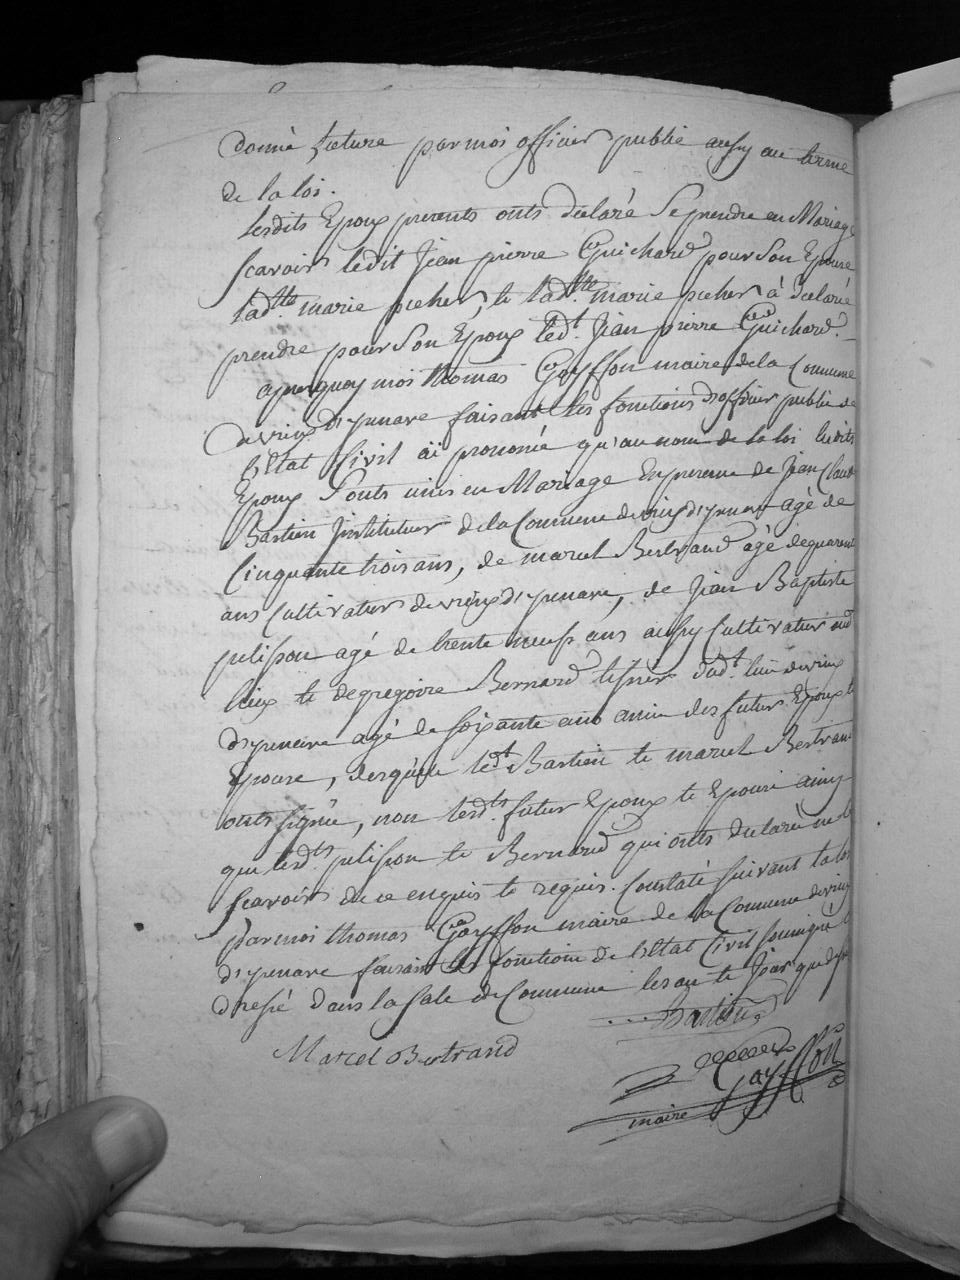 donné Lecture par moi officier public aussy au terme
de la loi.
Lesdits Epoux presents onts déclaré Se prendre en Mariage
scavoirs ledit Jean pierre Guichard pour Son Epouse
lad.tte marie picher, te lad.tte marie picher à déclaré
prendre pour Son Epoux led.t Jean pierre Guichard.
apres quoy moi thomas Gayffon maire de la Commune
de vieux d'ysenave faisant les fonctions d'officier public de
l'Etat Civil ai prononcé qu'au nom de la loi lesdits
Epoux Sonts unis en Mariage En presence de Jean Claude
Bastien Instituteur de la Commune de vieux d'ysenave agé de
Cinquante trois ans, de marcel Bertrand agé de quarente
ans Cultivateur de vieux d'ysenave, de Jean Baptiste
pelisson agé de trente neuf ans aussy Cultivateur aud
lieux te de gregoire Bernard tisserd dud.t lieu de vieux
d'ysenave agé de soixante ans amie des futurs Epoux te
Epouse, desquels led.t Bastien te marcel Bertrand
onts signé, non lesd.ts futur Epoux te Epouse ainsy
que lesd.ts pelisson te Bernard qui onts declaré ne le
scavoirs de ce enquis te requis. Constaté suivant la loi
par moi thomas Gayffon maire de la Commune de vieux
d'ysenave faisant les fonctions de l'Etat Civil soussigné te
dressé dans la Sale de Commune les an te Jour que dessus
Bastien
Marcel Bertrand
Gayffon
maire